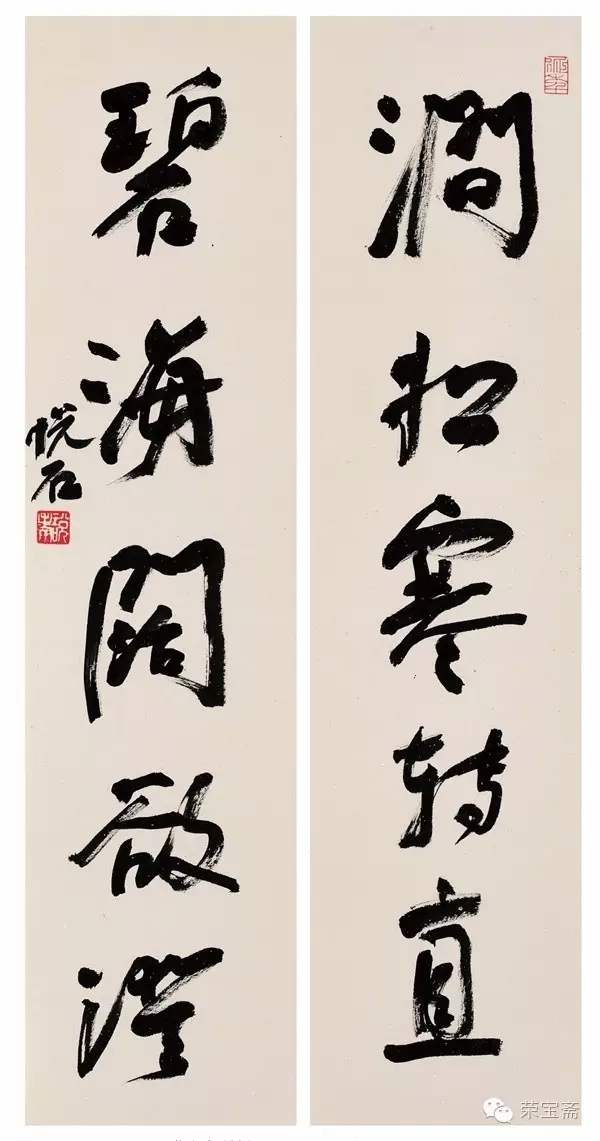 澗松寒轉直
碧海闊欲澄
悦石
荣宝斋